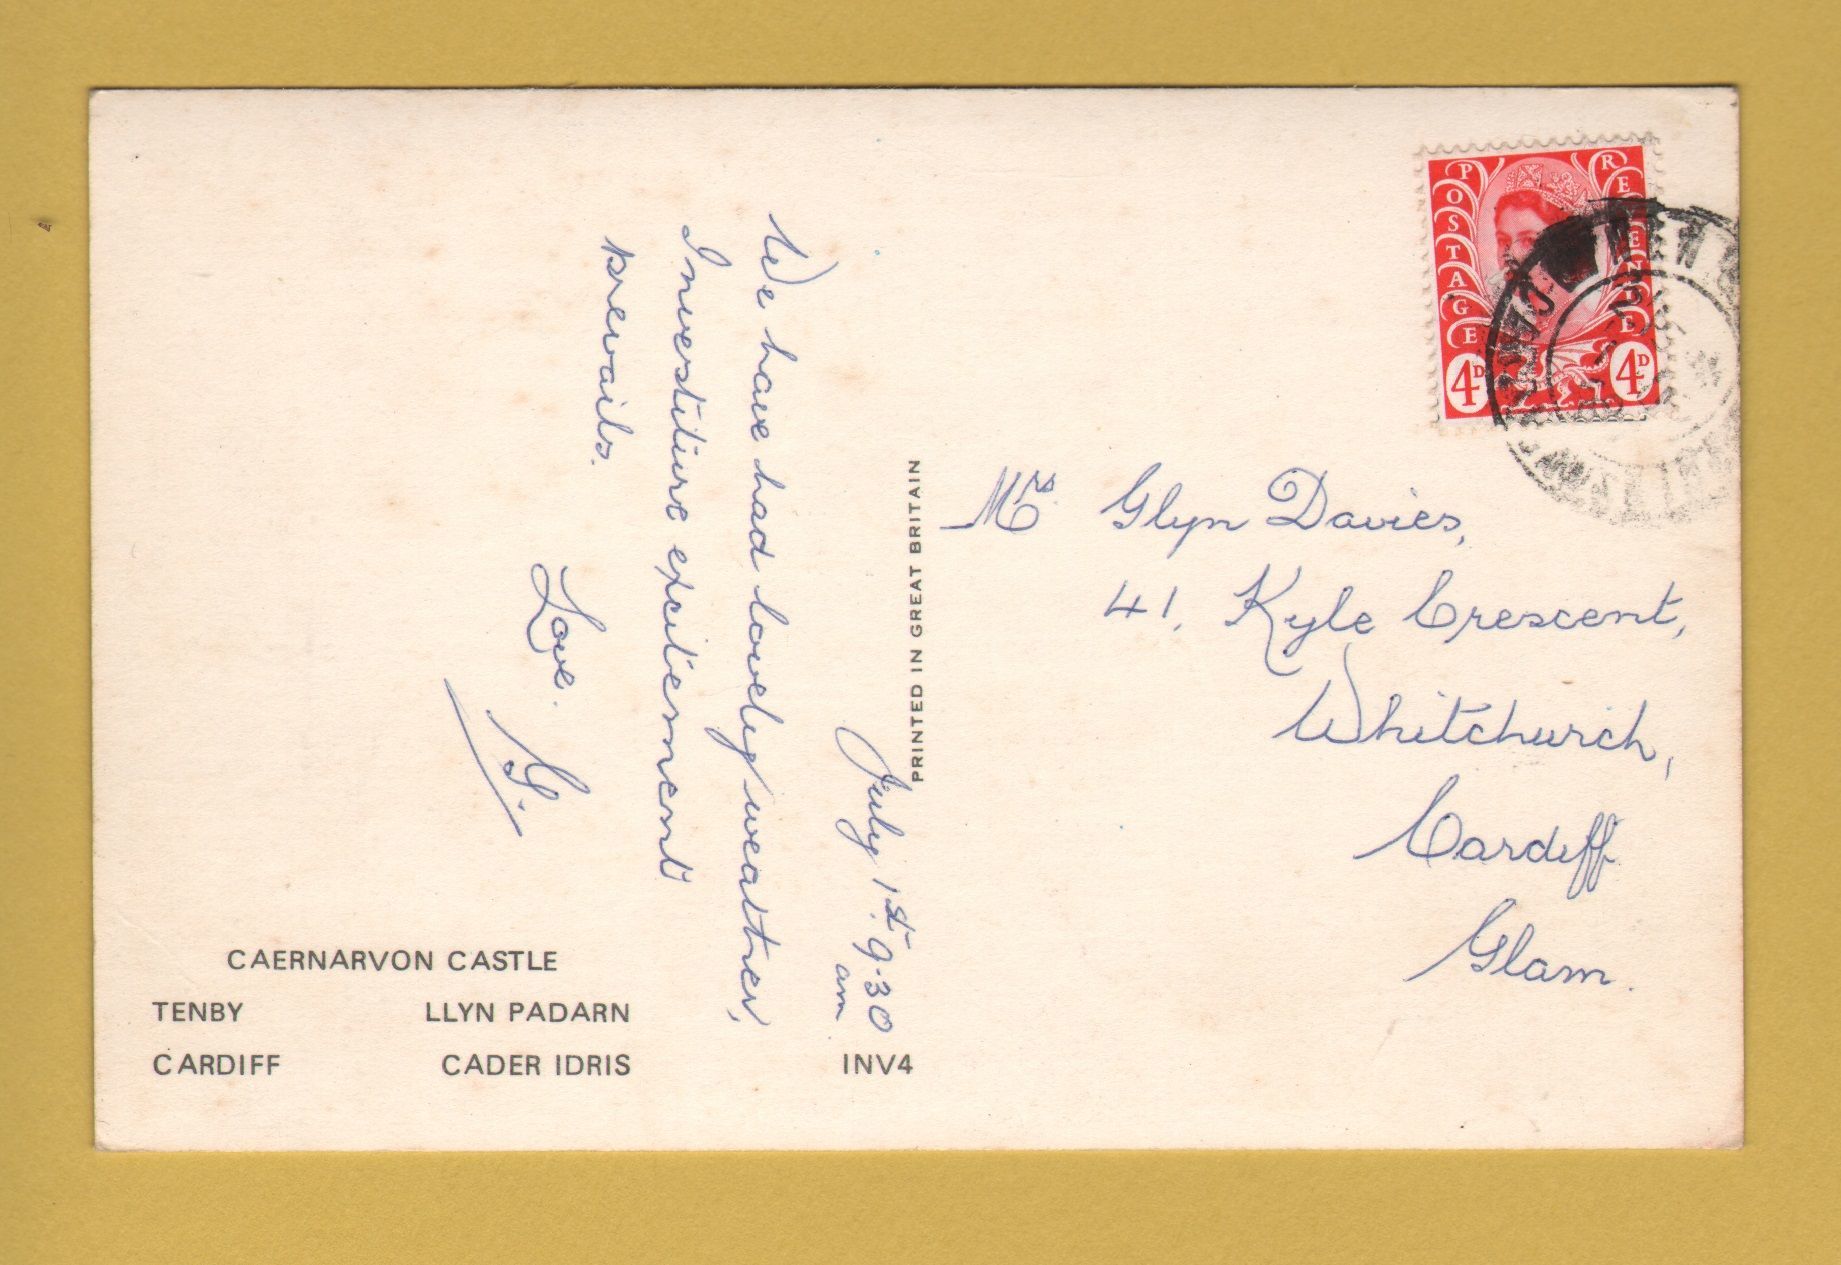 July 1st 9.30
am
We have had lovely weather,
Investiture excitement
prevails.
Love.
G.
CAERNARVON CASTLE
TENBY LLYN PADARN
CARDIFF CADER IDRIS
INV4
PRINTED IN GREAT BRITAIN
POSTAGE REVENUE
4D 4D
Mrs Glyn Davies,
41, Kyle Crescent,
Whitchurch,
Cardiff
Glam.